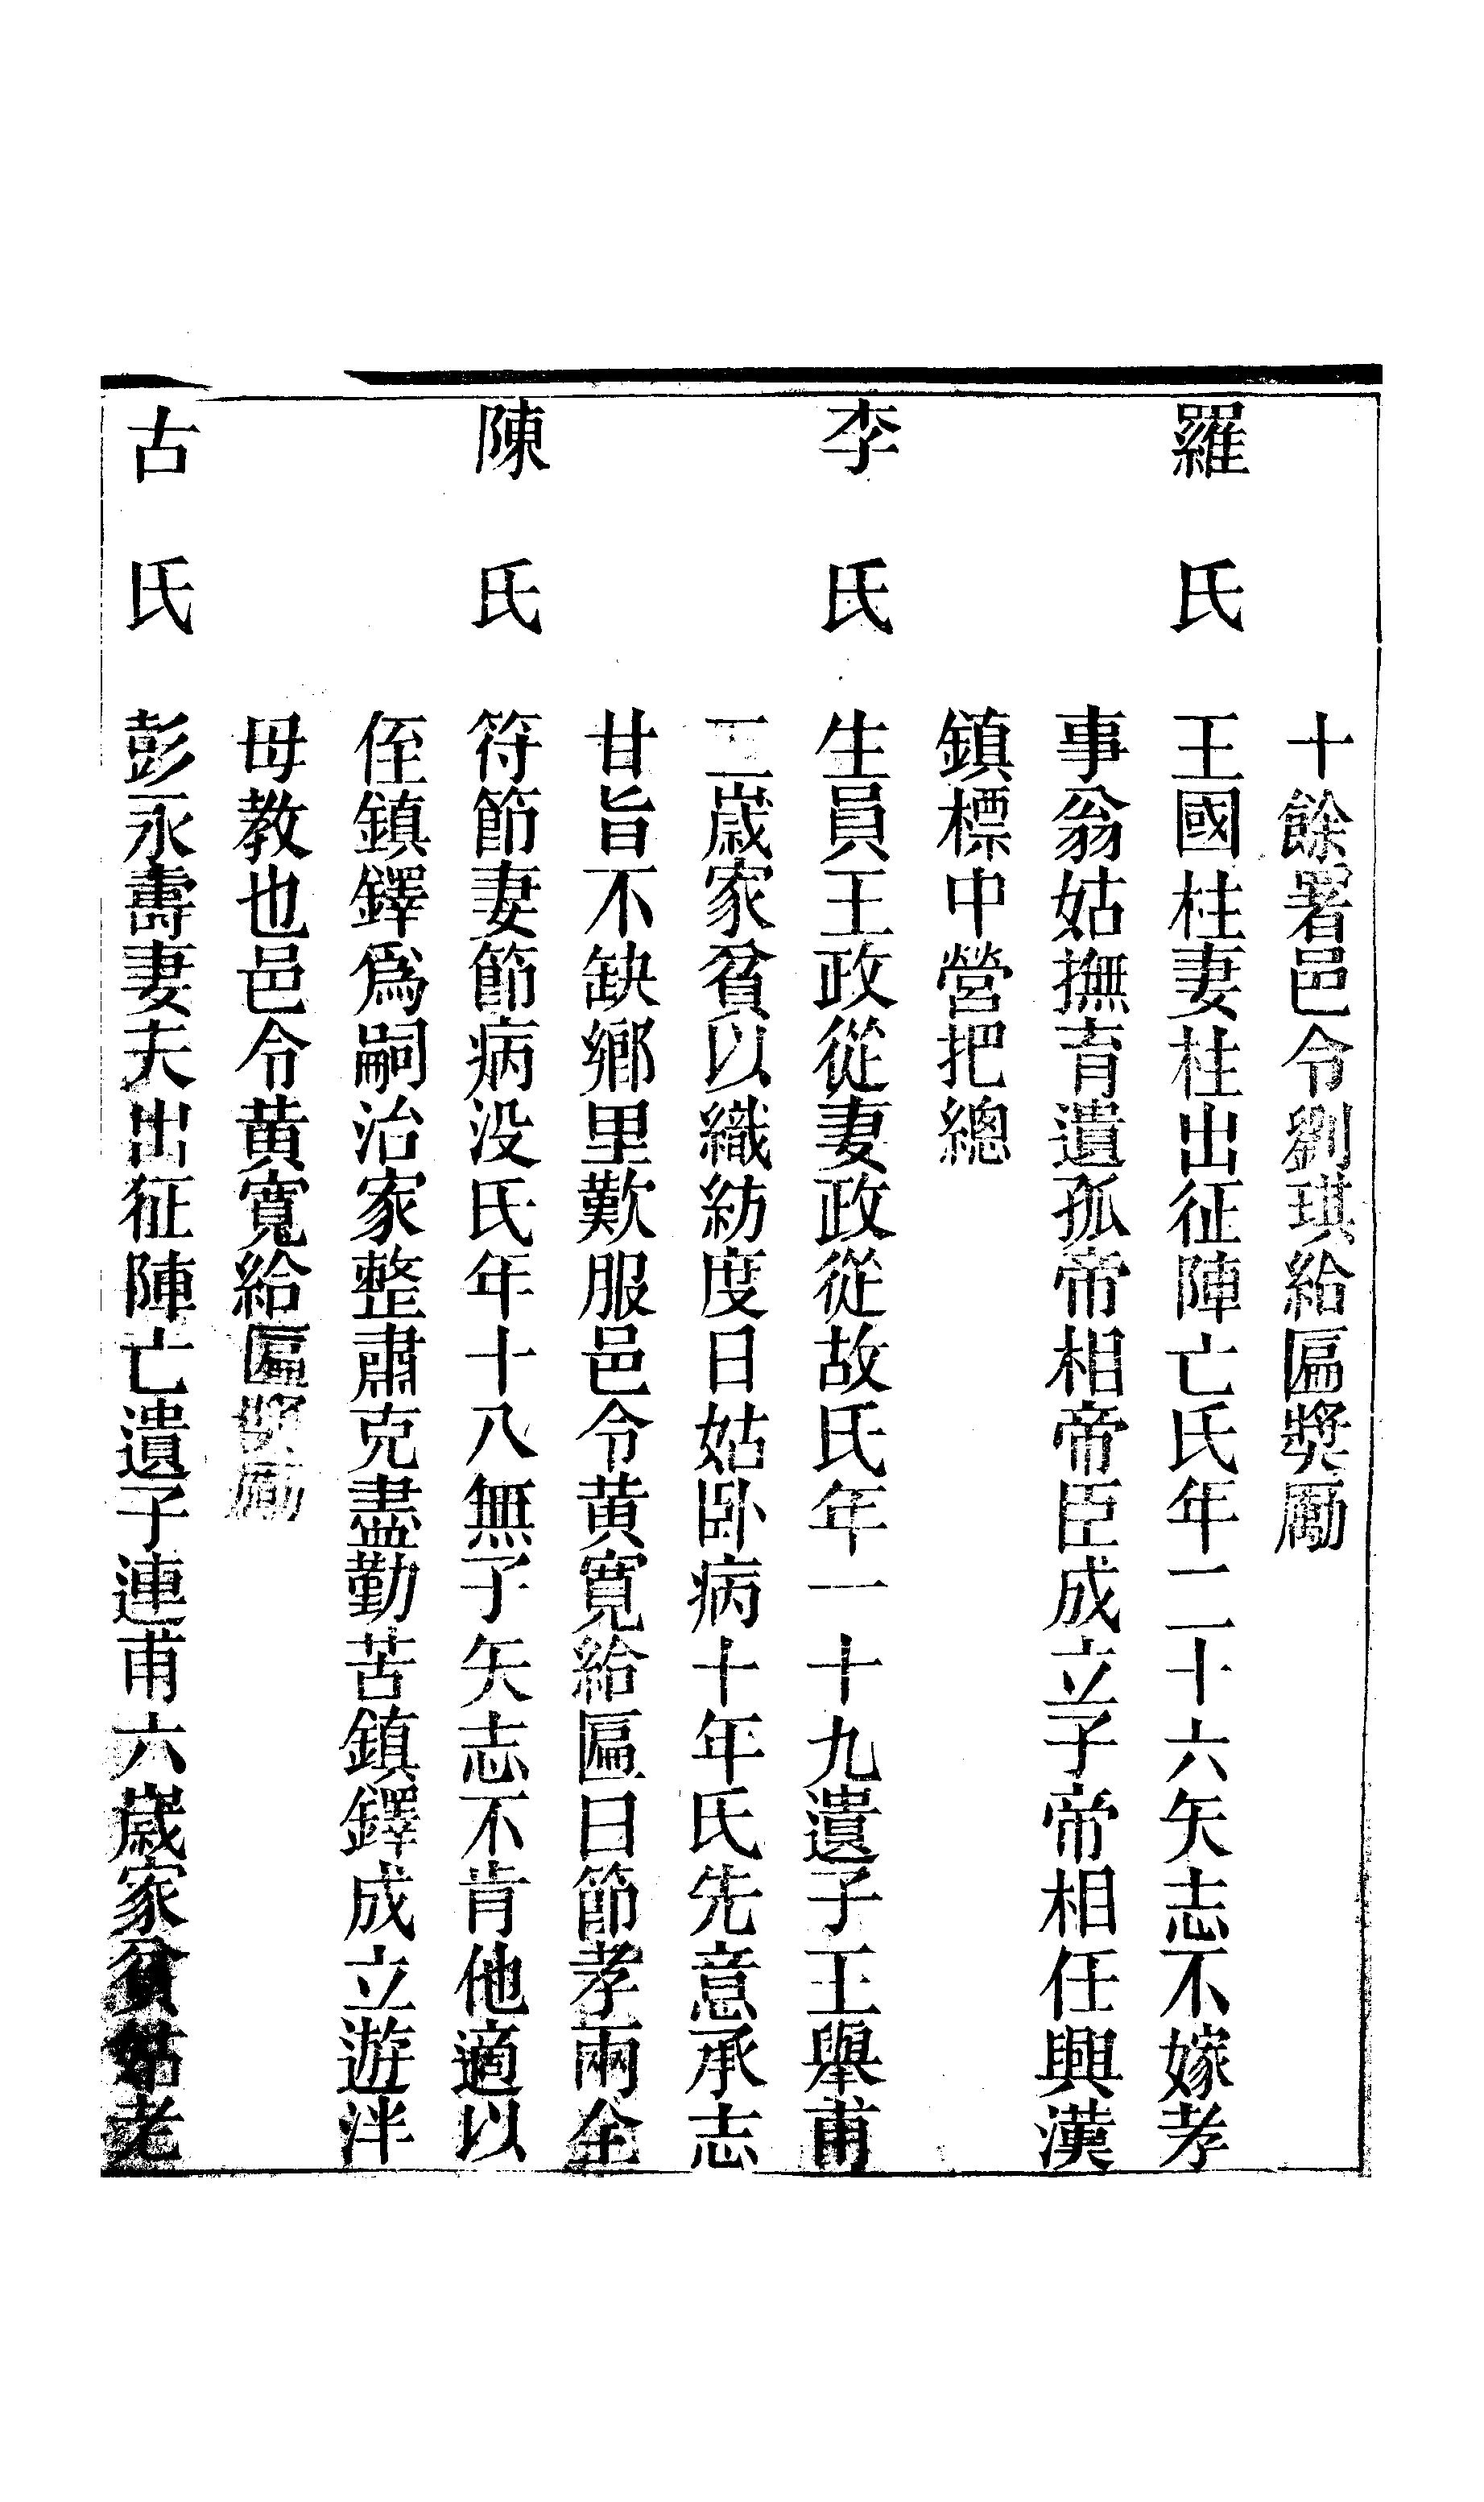 十餘署邑令劉琪給匾奬勵
羅氏　王國柱妻柱出征陣亡氏年二十六矢志不嫁孝
事翁姑撫育遺孤帝相帝臣成立子帝相任興漢
鎮標中營把總
李氏　生員王政從妻政從故氏年一十九遺子王舉甫
二歲家貧以織紡度日姑卧病十年氏先意承志
甘旨不缺鄉里歎服邑令黄寬給匾曰節孝兩全
陳氏　符節妻節病没氏年十八無子矢志不肯他適以
侄鎮鐸爲嗣治家整肅克盡勤苦鎮鐸成立遊泮
母教也邑令黄寬給匾奬勵
古氏　彭永壽妻夫出征陣亡遺子連甫六歲家貧姑老